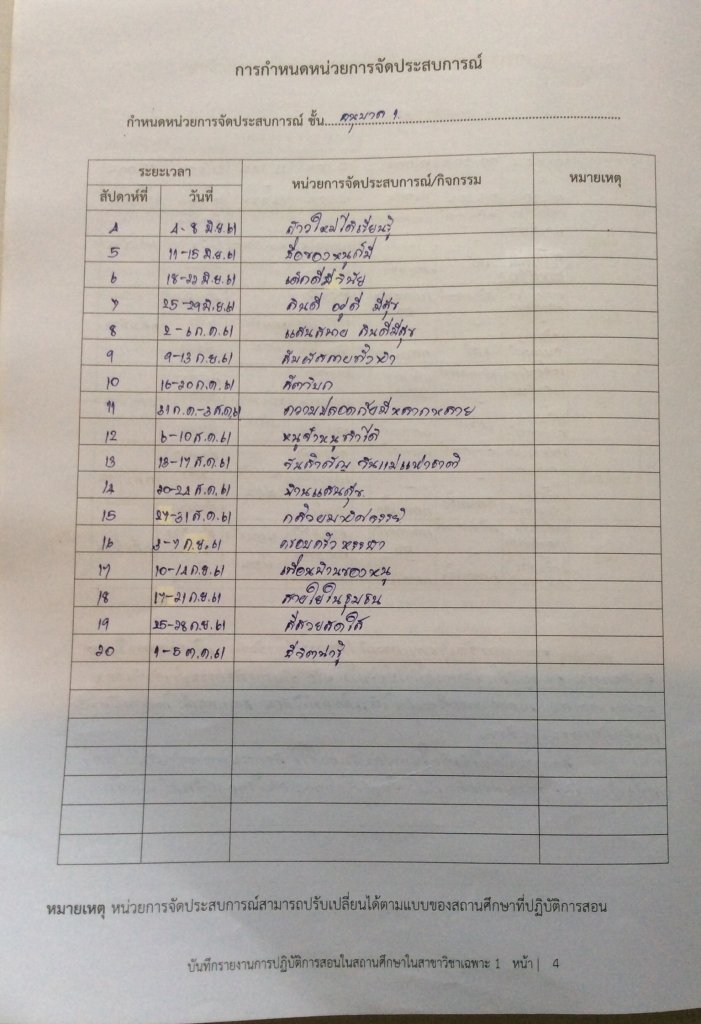 การกำหนดหน่วยการจัดประสบการณ์
กำหนดหน่วยการจัดประสบการณ์ ชั้น อนุบาล 1
ระยะเวลา
หน่วยการจัดประสบการณ์/กิจกรรม
หมายเหตุ
สัปดาห์ที่ วันที่
4 4-8 มิ.ย.61 ก้าวใหม่ได้เรียนรู้
5 11-15 มิ.ย.61 ชื่อของหนูก็มี
6 18-22 มิ.ย.61 เด็กดีมีวินัย
7 25-29 มิ.ย.61 กินดี อยู่ดี มีสุข
8 2-6 ก.ค.61 แสนสบาย กินดีมีสุข
9 9-13 ก.ย.61
10 16-20 ก.ค.61
11 31 ก.ค.-3 ส.ค.61 ความปลอดภัยมีหลากหลาย
12 6-10 ส.ค.61 หนูจ๋าหนูทำได้
13 13-17 ส.ค.61 วันสำคัญ วันแม่แห่งชาติ
14 20-24 ส.ค.61 บ้านแสนสุข
15 27-31 ส.ค.61
16 3-7 ก.ย.61 ครอบครัวหรรษา
17 10-14 ก.ย.61 เพื่อนบ้านของหนู
18 17-21 ก.ย.61 สายใยในชุมชน
19 25-28 ก.ย.61 สีสวยสดใส
20 1-5 ต.ค.61
หมายเหตุ หน่วยการจัดประสบการณ์สามารถปรับเปลี่ยนได้ตามแบบของสถานศึกษาที่ปฏิบัติการสอน
บันทึกรายงานการปฏิบัติการสอนในสถานศึกษาในสาขาวิชาเฉพาะ 1 หน้า | 4